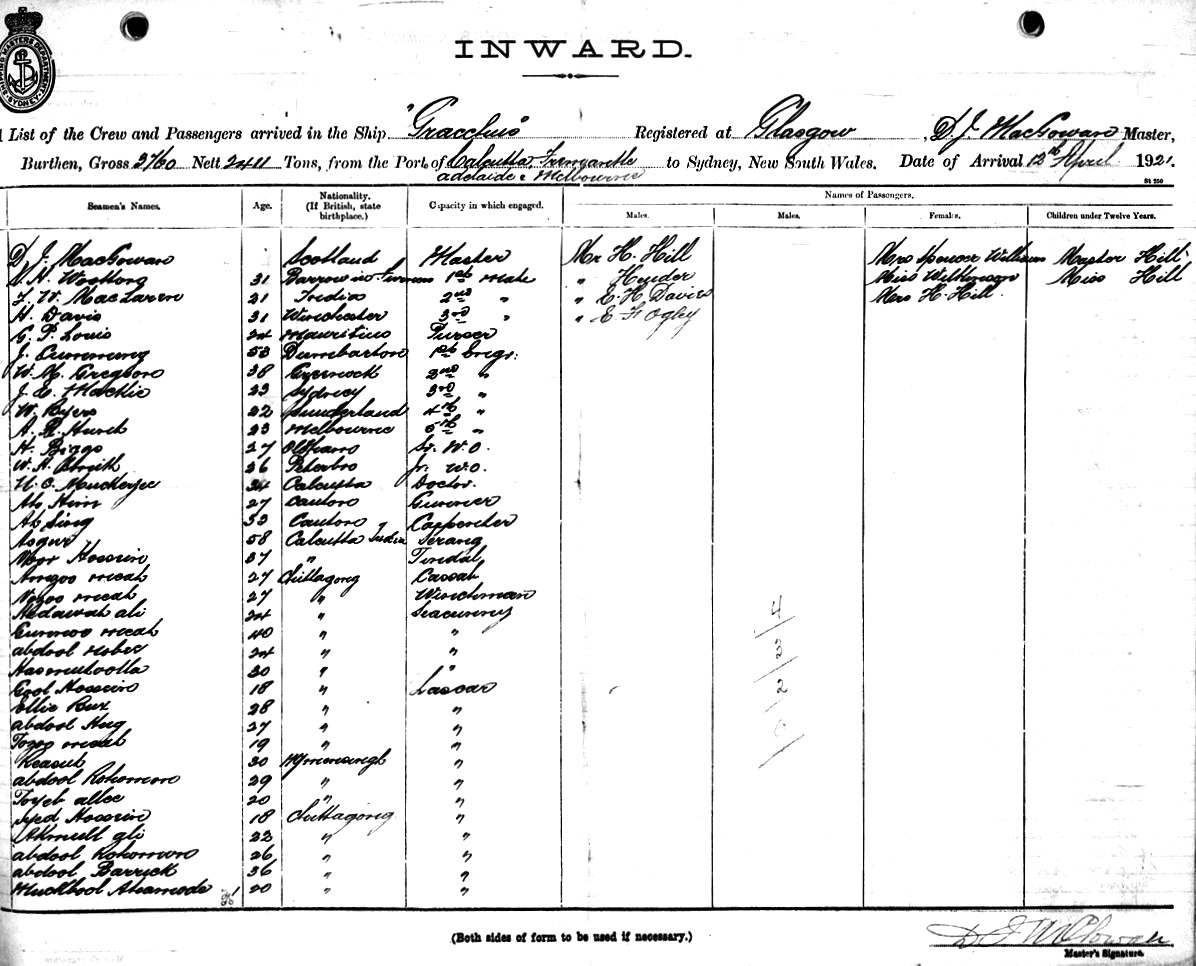 SHIPPING MASTERS DEPARTMENT SYDNEY
INWARD.
List of the Crew and Passengers arrived in the Ship "Gracchus" Registered at Glasgow, D. J. MacGowan Master,
Burthen, Gross 3760 Nett 2411 Tons, from the Port of Calcutta, Fremantle to Sydney, New South Wales. Date of Arrival 12th April 1921.
adelaide & Melbourne
Seamen's Names. Age. Nationality. (If British, state birthplace.) Capacity in which engaged. Names of Passengers.
Males. Males. Females. Children under Twelve Years.
D. J. MacGowan Scotland Master Mr H. Hill Mrs Spencer Williams Master Hill
31 Barrow in Furness 1st Mate " Miss Miss Hill
MacLaren 21 India 2nd " " C. H. Davies Mrs H. Hill
H. Davis 31 Winchester 3rd " " E. F. Ogley
C. P. Louis 24 Mauritius Purser
J. Cumming 53 Dumbarton 1st Engr.
W. M. Gregson 38 Greenock 2nd "
J. L. Mackie 23 Sydney 3rd "
W. Byers 22 Sunderland 4th "
23 Melbourne 5th "
H. Biggs 27 Oldham Sr. W.O.
W. H. 26 Peterbro Jr. W.O.
Muckerjee 34 Calcutta Doctor
27 Canton Gunner
Ah Sing 53 Canton Carpenter
Asgur 58 Calcutta India Serang
Noor Hossein 37 " Tindal
meah 27 Chittagong Cassab
meah 27 " Winchman
ali 24 " Seacunny
meah 40 " "
abdool 24 " "
30 " "
Gool Hossein 18 " Lascar
Ellie Bux 28 " "
abdool Huq 27 " "
meah 19 " "
30 Mymensingh "
abdool Rohomon 29 " "
Toyeb allee 20 " "
Syed Hossein 18 Chittagong "
ali 22 " "
abdool Rohomon 26 " "
abdool Barryck 36 " "
Muckbool Ahamode 20 " "
(Both sides of form to be used if necessary.)
Master's Signature.